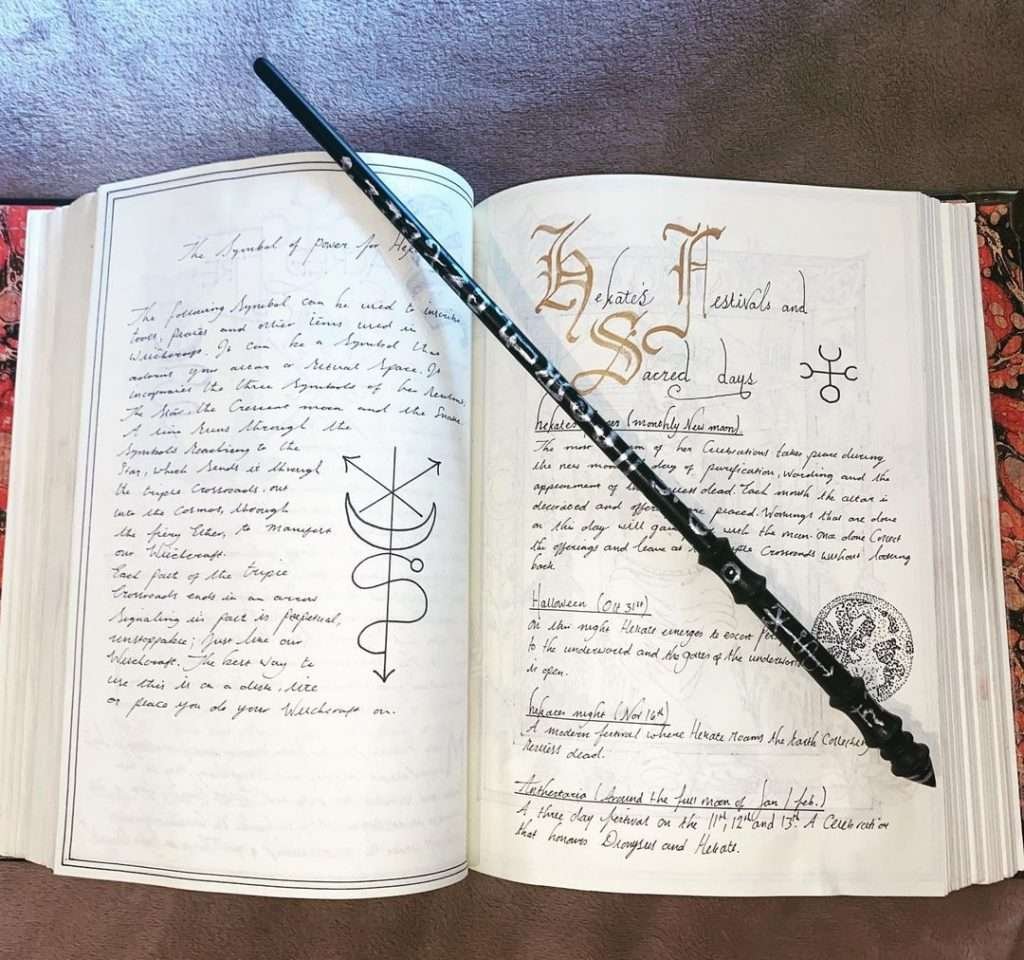 The Symbol of power for
The following Symbol can be used to inscribe
tools, places and other items used in
Witchcraft. It can be a Symbol that
adorns your altar or Ritual Space. It
incorporates the three Symbols of her
The Star, the Crescent moon and the Snake.
A line Runs through the
Symbols Reaching to the
Star, which sends it through
the triple Crossroads, out
into the Cosmos, through
the fiery Ether, to Manifest
our Witchcraft.
Each part of the triple
Crossroads ends in an arrow
Signaling its path is perpetual,
unstoppable; Just like our
Witchcraft. The best way to
use this is on a disk, tile
or place you do your Witchcraft on.
Hekate's Festivals and
Sacred days
hekates (monthly New moon)
The most of her Celebrations takes place during
the new moon day of purification, Warding and the
appeasment of the dead. Each month the altar is
decorated and placed. Workings that are done
on this day will with the moon. Once done Collect
the offerings and leave at Crossroads without looking
back.
Halloween (Oct 31st)
On this night Hekate emerges to escort
to the underworld and the gates of the
is open.
hekates night (Nov 16th)
A modern festival where Hekate roams the Earth Collecting
restless dead.
Anthesteria (Around the full moon of Jan / feb.)
A three day festival on the 11th, 12th and 13th. A Celebration
that honours Dionysus and Hekate.